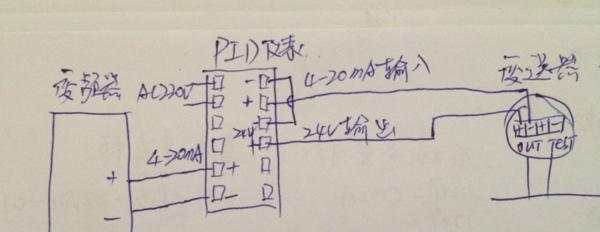 PID仪表
变频器
变送器
AC220V
-
4-20mA输入
+
-
24V
+
24V输出
4-20mA
+
+
-
-
+ - + -
OUT TEST